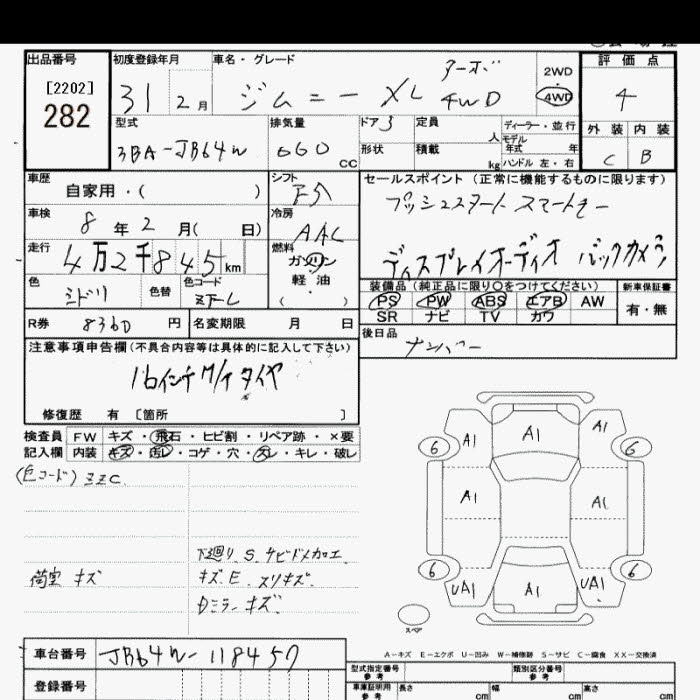 出品番号 初度登録年月 車名・グレード 評価点
[2202]
282
31 2月 ジムニー XL ターボ 4WD 2WD 4WD 4
型式 排気量 ドア 3 定員 人 ディーラー・並行 外装 内装
3BA-JB64W 660 CC 形状 積載 kg モデル年式 年 ハンドル 左・右 C B
車歴 自家用・( ) シフト F5
セールスポイント (正常に機能するものに限ります)
プッシュスタート スマートキー
車検 8年 2月( 日) 冷房 AAC
走行 4万2千845km 燃料 ガソリン 軽油 ・( )
ディスプレイオーディオ バックカメラ
色 ミドリ 色替 色コード
装備品 (純正品に限り○をつけてください) 新車保証書
PS PW ABS エアB AW 有・無
SR ナビ TV カワ
R券 8360円 名変期限 月 日
後日品 ナンバー
注意事項申告欄(不具合内容等は具体的に記入して下さい)
16インチ タイヤ
修復歴 有 [箇所 ]
検査員 FW キズ・飛石・ヒビ割・リペア跡・×要
記入欄 内装 キズ・汚レ・コゲ・穴・スレ・キレ・破レ
(色コード) ZZC
下廻り、S、サビドメ加工
荷室 キズ キズ、E、スリキズ、
Dミラーキズ、
A1 A1 A1
6 6
A1 A1
6 6
UA1 A1 UA1
スペア
A-キズ E-エクボ U-凹み W-補修跡 S-サビ C-腐食 XX-交換済
車台番号 JB64W-118457
登録番号
型式指定番号 参考 類別区分番号 参考
車庫証明用 参考 長さ cm 幅 cm 高さ cm